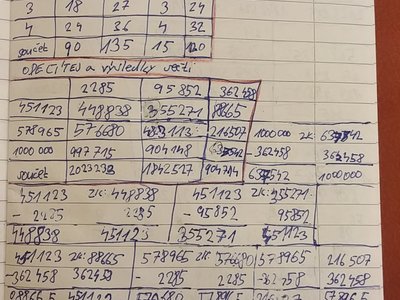 3 18 27 3 24
4 24 36 4 32
součet 90 135 15 120
2285 95852 362458
451123 448838 355271 88665
578965 576680 483113 216507 1000000 zk: 637542
1000000 997715 904148 637542 -362458 362458
součet 2023233 1742527 904714 637542 1000000
451123 zk: 448838 451123 zk: 355271
- 2285 2285 - 95852 95852
448838 451123 355271 451123
451123 zk: 88665 578965 zk: 576680 578965 216507
-362458 362458 - 2285 2285 -362458 362458
88665 451123 578965